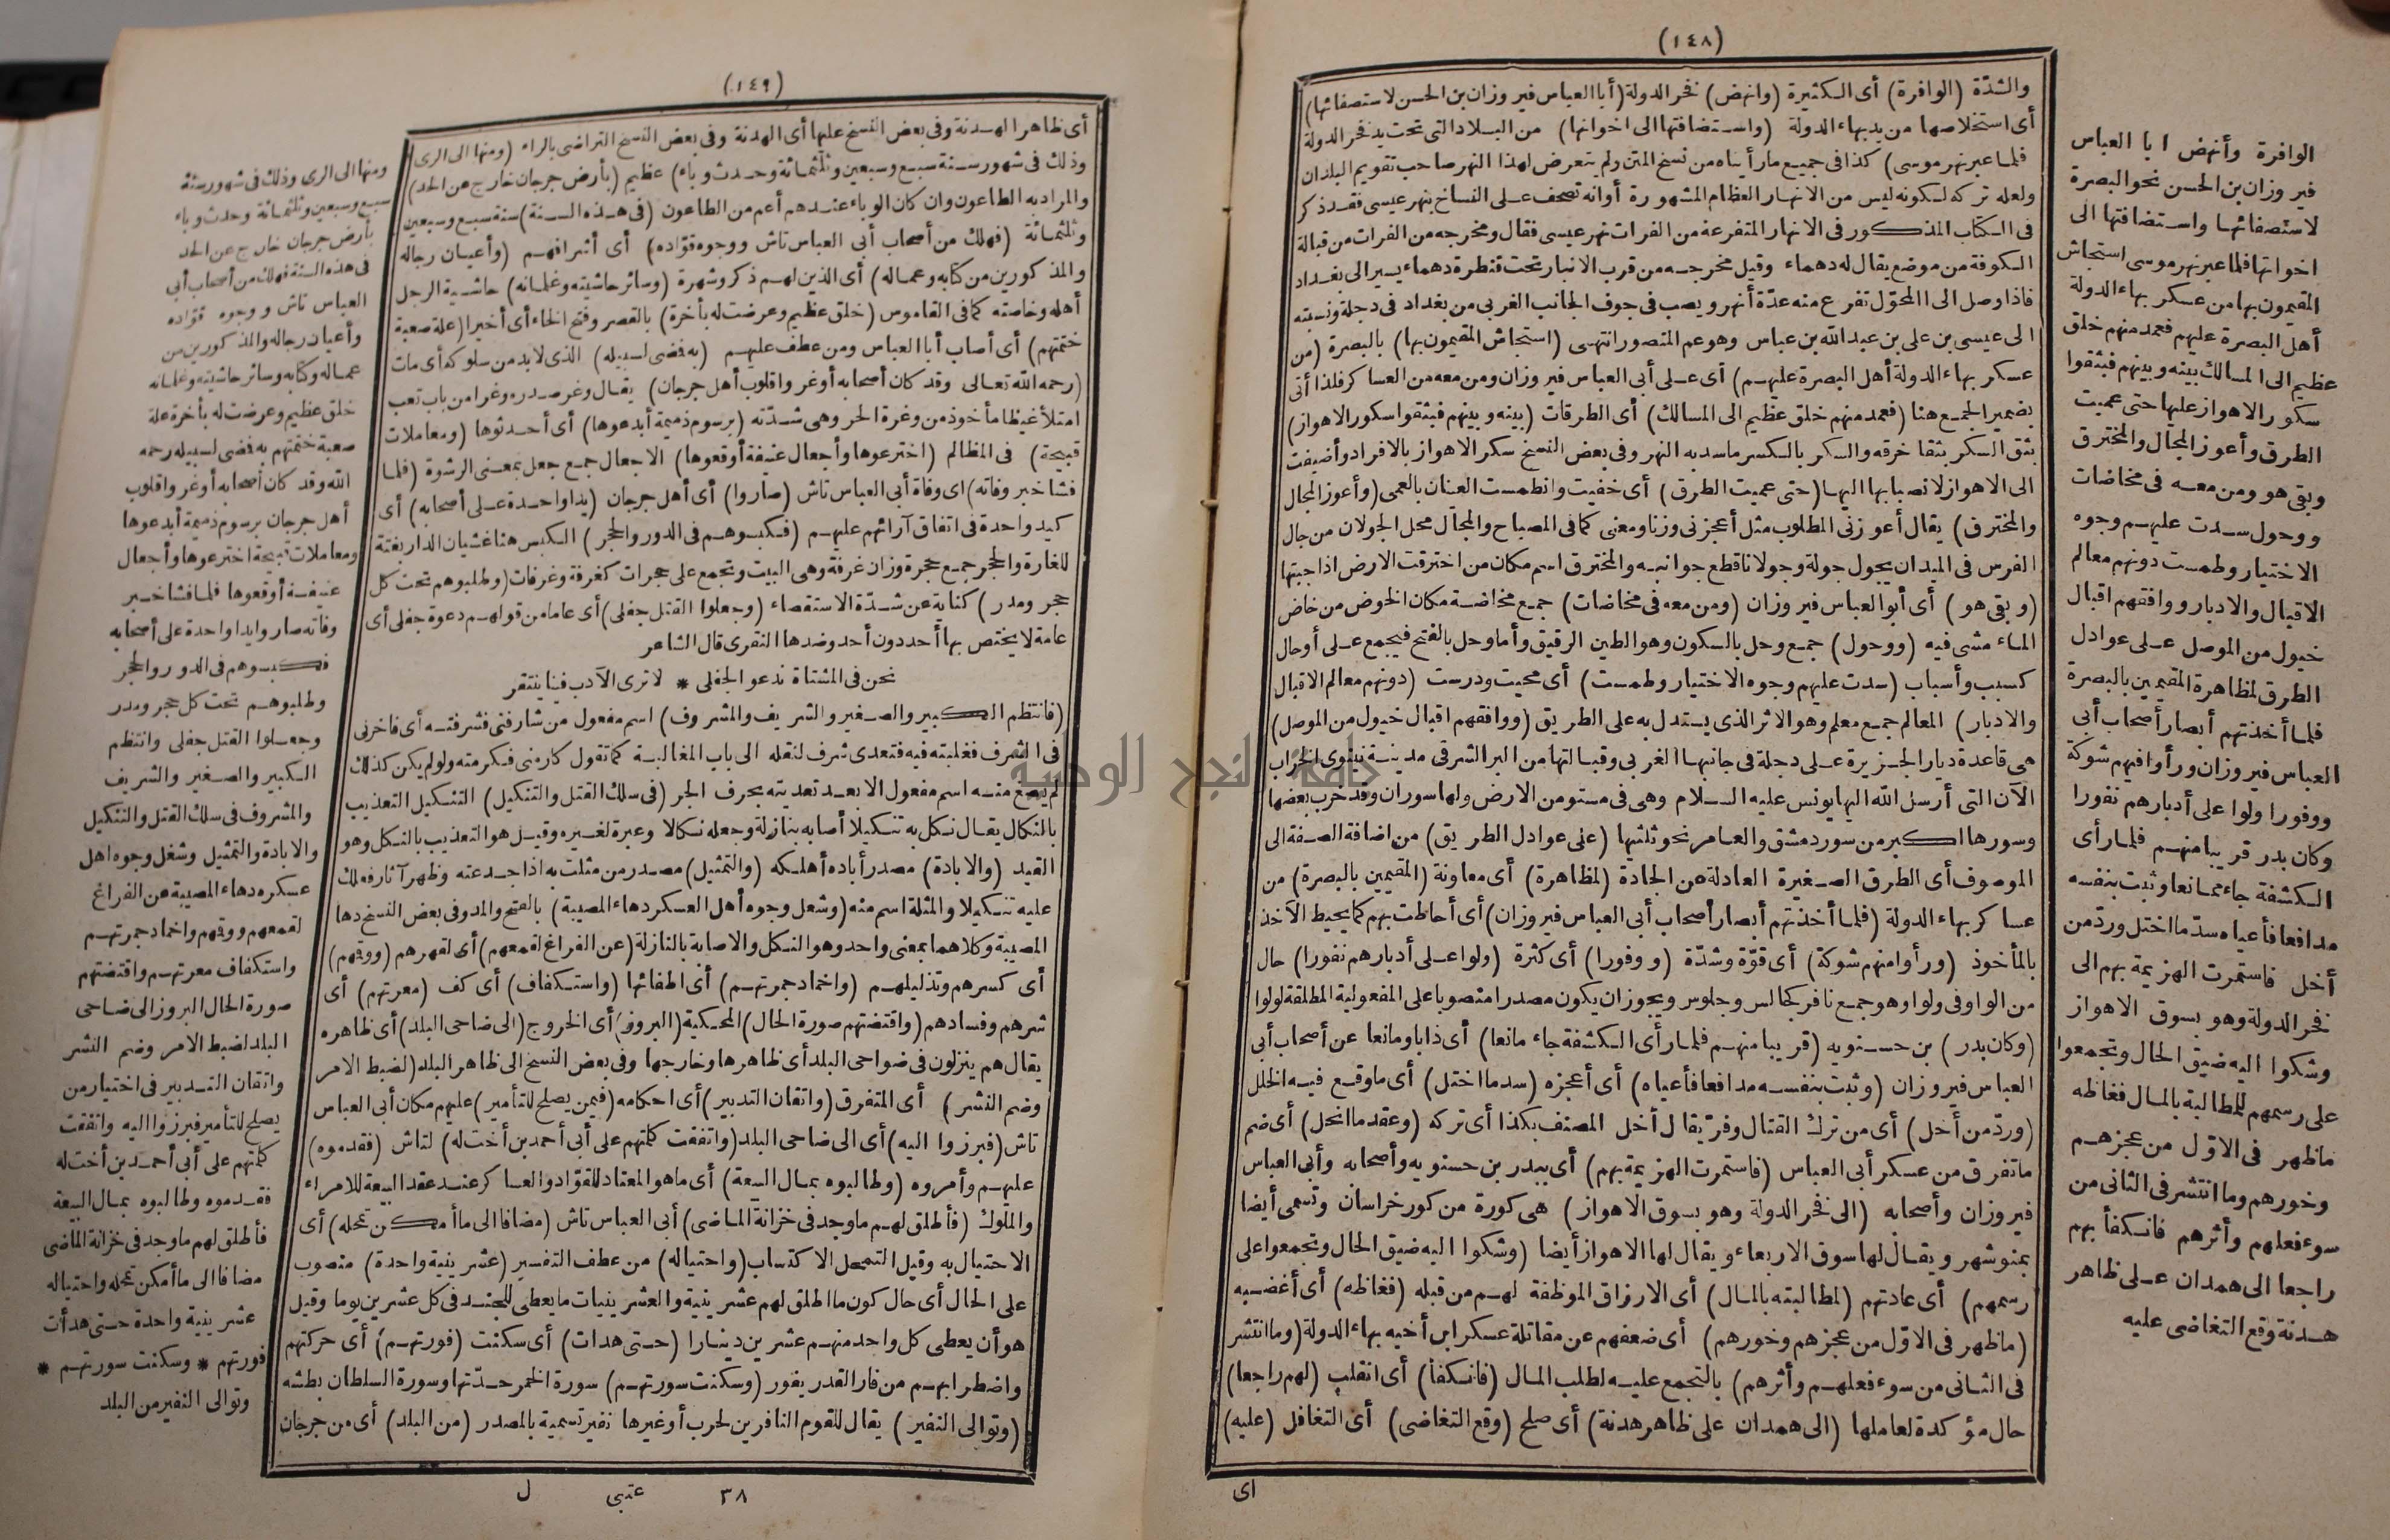 (١٤٨)
والشدّة (الوافرة) أى الكثيرة (وانهض) فخر الدولة (أبا العباس فيروزان بن الحسن لاستصفائها)
أى استخلاصها من يد بهاء الدولة (واستضافتها الى اخواتها) من البلاد التى تحت يد فخر الدولة
فلما عبر نهر موسى) كذا فى جميع ما رأيناه من نسخ المتن ولم يتعرض لهذا النهر صاحب تقويم البلدان
ولعله تركه لكونه ليس من الانهار العظام المشهورة أوانه تصحف على النساخ بنهر عيسى فقد ذكر
فى الكتاب المذكور فى الانهار المتفرعة من الفرات نهر عيسى فقال ومخرجه من الفرات من قبالة
الكوفة من موضع يقال له دهماء وقيل مخرجه من قرب الانبار تحت قنطرة دهماء يسير الى بغداد
فاذا وصل الى المحوّل تفرع منه عدّة أنهر ويصب فى جوف الجانب الغربى من بغداد فى دجلة ونسبته
الى عيسى بن على بن عبد الله بن عباس وهو عم المنصور انتهى (استجاش المقيمون بها) بالبصرة (من
عسكر بهاء الدولة أهل البصرة عليهم) أى على أبى العباس فيروزان ومن معه من العساكر فلذا أتى
بضمير الجمع هنا (فعمد منهم خلق عظيم الى المسالك) أى الطرقات (بينه وبينهم فبثقوا سكور الاهواز)
بثق السكر بثقا خرقه والسكر بالكسر ما سد به النهر وفى بعض النسخ سكر الاهواز بالافراد وأضيفت
الى الاهواز لانصبابها اليها (حتى عميت الطرق) أى خفيت وانطمست العنان بالعمى (وأعوز المجال
والمخترق) يقال أعوزنى المطلوب مثل أعجزنى وزنا ومعنى كما فى المصباح والمجال محل الجولان من جال
الفرس فى الميدان يجول جولة وجولانا قطع جوانبه والمخترق اسم مكان من اخترقت الارض اذا جبتها
(وبقى هو) أى أبو العباس فيروزان (ومن معه فى مخاضات) جمع مخاضة مكان الخوض من خاض
الماء مشى فيه (ووحول) جمع وحل بالسكون وهو الطين الرقيق وأما وحل بالفتح فيجمع على أوحال
كسبب وأسباب (سدت عليهم وجوه الاختيار وطمست) أى محيت ودرست (دونهم معالم الاقبال
والادبار) المعالم جمع معلم وهو الاثر الذى يستدل به على الطريق (ووافقهم اقبال خيول من الموصل)
هى قاعدة ديار الجزيرة على دجلة فى جانبها الغربى وقبالتها من البر الشرقى مدينة نينوى الخراب
الآن التى أرسل الله اليها يونس عليه السلام وهى فى مستو من الارض ولها سوران وقد خرب بعضها
وسورها اكبر من سور دمشق والعامر نحو ثلثيها (على عوادل الطريق) من اضافة الصفة الى
الموصوف أى الطرق الصغيرة العادلة عن الجادة (لمظاهرة) أى معاونة (المقيمين بالبصرة) من
عساكر بهاء الدولة (فلما أخذتهم أبصار أصحاب أبى العباس فيروزان) أى أحاطت بهم كما يحيط الآخذ
بالمأخوذ (ورأوا منهم شوكة) أى قوّة وشدّة (ووفورا) أى كثرة (ولوا على أدبارهم نفورا) حال
من الواو فى ولوا وهو جمع نافر كجالس وجلوس ويجوز ان يكون مصدرا منصوبا على المفعولية المطلقة لولوا
(وكان بدر) بن حسنويه (قريبا منهم فلما رأى الكشفة جاء مانعا) أى ذابا ومانعا عن أصحاب أبى
العباس فيروزان (وثبت بنفسه مدافعا فأعياه) أى أعجزه (سد ما اختل) أى ما وقع فيه الخلل
(وردّ من أخل) أى من ترك القتال وفرّ يقال أخل المصنف بكذا أى تركه (وعقد ما انحل) أى ضم
ما تفرق من عسكر أبى العباس (فاستمرت الهزيمة بهم) أى ببدر بن حسنويه وأصحابه وأبى العباس
فيروزان وأصحابه (الى فخر الدولة وهو بسوق الاهواز) هى كورة من كور خراسان وتسمى أيضا
بمنوشهر ويقال لها سوق الاربعاء ويقال لها الاهواز أيضا (وشكوا اليه ضيق الحال وتجمعوا على
رسمهم) أى عادتهم (لمطالبته بالمال) أى الارزاق الموظفة لهم من قبله (فغاظه) أى أغضبه
(ما ظهر فى الاوّل من عجزهم وخورهم) أى ضعفهم عن مقاتلة عسكر ابن أخيه بهاء الدولة (وما انتشر
فى الثانى من سوء فعلهم وأثرهم) بالتجمع عليه لطلب المال (فانكفأ) أى انقلب (لهم راجعا)
حال مؤكدة لعاملها (الى همدان على ظاهر هدنة) أى صلح (وقع التغاضى) أى التغافل (عليه)
اى
الوافرة وأنهض ابا العباس
فيروزان بن الحسن نحو البصرة
لاستصفائها واستضافتها الى
اخواتها فلما عبر نهر موسى استجاش
المقيمون بها من عسكر بهاء الدولة
أهل البصرة عليهم فعمد منهم خلق
عظيم الى المسالك بينه وبينهم فبثقوا
سكور الاهواز عليها حتى عميت
الطرق وأعوز المجال والمخترق
وبقى هو ومن معه فى مخاضات
ووحول سدت عليهم وجوه
الاختيار وطمست دونهم معالم
الاقبال والادبار ووافقهم اقبال
خيول من الموصل على عوادل
الطرق لمظاهرة المقيمين بالبصرة
فلما أخذتهم أبصار أصحاب أبى
العباس فيروزان ورأوا فيهم شوكة
ووفورا ولوا على أدبارهم نفورا
وكان بدر قريبا منهم فلما رأى
الكشفة جاء ممانعا وثبت بنفسه
مدافعا فأعياه سدّ ما اختل وردّ من
أخل فاستمرت الهزيمة بهم الى
فخر الدولة وهو بسوق الاهواز
وشكوا اليه ضيق الحال وتجمعوا
على رسمهم للمطالبة بالمال فغاظه
ما ظهر فى الاوّل من عجزهم
وخورهم وما انتشر فى الثانى من
سوء فعلهم وأثرهم فانكفأ بهم
راجعا الى همدان على ظاهر
هدنة وقع التغاضى عليه
(١٤٩)
أى ظاهر الهدنة وفى بعض النسخ عليها أى الهدنة وفى بعض النسخ التراضى بالراء (ومنها الى الرى
وذلك فى شهور سنة سبع وسبعين وثلثمائة وحدث وباء) عظيم (بأرض جرجان خارج عن الحد)
والمراد به الطاعون وان كان الوباء عندهم أعم من الطاعون (فى هذه السنة) سنة سبع وسبعين
وثلثمائة (فهلك من أصحاب أبى العباس تاش ووجوه قوّاده) أى أشرافهم (وأعيان رجاله
والمذكورين من كتابه وعماله) أى الذين لهم ذكر وشهرة (وسائر حاشيته وغلمانه) حاشية الرجل
أهله وخاصته كما فى القاموس (خلق عظيم وعرضت له بأخرة) بالقصر وفتح الخاء أى أخيرا (علة صعبة
ختمتهم) أى أصاب أبا العباس ومن عطف عليهم (به فضى لسبيله) الذى لابد من سلوكه أى مات
(رحمه الله تعالى وقد كان أصحابه أوغروا قلوب أهل جرجان) يقال وغر صدره وغرا من باب تعب
امتلأ غيظا مأخوذ من وغرة الحر وهى شدّته (برسوم ذميمة أبدعوها) أى أحدثوها (ومعاملات
قبيحة) فى المظالم (اخترعوها وأجعال عنيفة أوقعوها) الاجعال جمع جعل بمعنى الرشوة (فلما
فشا خبر وفاته) اى وفاة أبى العباس تاش (صاروا) أى أهل جرجان (يدا واحدة على أصحابه) أى
كيد واحدة فى اتفاق آرائهم عليهم (فكبسوهم فى الدور والحجر) الكبس هنا غشيان الدار بغتة
للغارة والحجر جمع حجرة وزان غرفة وهى البيت وتجمع على حجرات كغرفة وغرفات (وطلبوهم تحت كل
حجر ومدر) كناية عن شدّة الاستقصاء (وجعلوا القتل جفلى) أى عاما من قولهم دعوة جفلى أى
عامة لا يختص بها أحد دون أحد وضدها النقرى قال الشاعر
نحن فى المشتاة ندعو الجفلى * لا ترى الآدب فينا ينتقر
(فانتظم الكبير والصغير والشريف والمشروف) اسم مفعول من شارفنى فشرفته أى فاخرنى
فى الشرف فغلبته فيه فتعدى شرف لنقله الى باب المغالبة كما تقول كارمنى فكرمته ولو لم يكن كذلك
لم يصغ منه اسم مفعول الا بعد تعديته بحرف الجر (فى سلك القتل والتنكيل) التنكيل التعذيب
بالنكال يقال نكل به تنكيلا أصابه بنازلة وجعله نكالا وعبرة لغيره وقيل هو التعذيب بالنكل وهو
القيد (والابادة) مصدر أباده أهلكه (والتمثيل) مصدر من مثلت به اذا جدعته وظهر آثار فعلك
عليه تنكيلا والمثلة اسم منه (وشغل وجوه أهل العسكر دهاء المصيبة) بالفتح والمد وفى بعض النسخ دها
المصيبة وكلاهما بمعنى واحد وهو النكل والاصابة بالنازلة (عن الفراغ لقمعهم) أى لقهرهم (ووقهم)
أى كسرهم وتذليلهم (واخماد جمرتهم) أى اطفائها (واستكفاف) أى كف (معرتهم) أى
شرهم وفسادهم (واقتضتهم صورة الحال) المحكية (البروز) أى الخروج (الى ضاحى البلد) أى ظاهره
يقال هم ينزلون فى ضواحى البلد أى ظاهرها وخارجها وفى بعض النسخ الى ظاهر البلد (لضبط الامر
وضم النشر) أى المتفرق (واتقان التدبير) أى احكامه (فيمن يصلح للتأمير) عليهم مكان أبى العباس
تاش (فبرزوا اليه) أى الى ضاحى البلد (واتفقت كلمتهم على أبى أحمد بن أخت له) لتاش (فقدموه)
عليهم وأمروه (وطالبوه بمال البيعة) أى ما هو المعتاد للقوّاد والعساكر عند عقد البيعة للامراء
والملوك (فأطلق لهم ما وجد فى خزانة الماضى) أبى العباس تاش (مضافا الى ما أمكن تمحله) أى
الاحتيال به وقيل التمحل الاكتساب (واحتياله) من عطف التفسير (عشرينية واحدة) منصوب
على الحال أى حال كون ما اطلق لهم عشرينية والعشرينيات ما يعطى للجند فى كل عشرين يوما وقيل
هو أن يعطى كل واحد منهم عشرين دينارا (حتى هدات) أى سكنت (فورتهم) أى حركتهم
واضطرابهم من فار القدر يفور (وسكنت سورتهم) سورة الخمر حدّتها وسورة السلطان بطشه
(وتوالى النفير) يقال للقوم النافرين لحرب أو غيرها نفير تسمية بالمصدر (من البلد) أى من جرجان
٣٨ عتبى ل
ومنها الى الرى وذلك فى شهور سنة
سبع وسبعين وثلثمائة وحدث وباء
بأرض جرجان خارج عن الحد
فى هذه السنة فهلك من أصحاب أبى
العباس تاش ووجوه قوّاده
وأعيان رجاله والمذكورين من
عماله وكتابه وسائر حاشيته وغلمانه
خلق عظيم وعرضت له بأخرة علة
صعبة ختمتهم به فضى لسبيله رحمه
الله وقد كان أصحابه أوغروا قلوب
أهل جرجان برسوم ذميمة أبدعوها
ومعاملات قبيحة اخترعوها وأجعال
عنيفة أوقعوها فلما فشا خبر
وفاته صاروا يدا واحدة على أصحابه
فكبسوهم فى الدور والحجر
وطلبوهم تحت كل حجر ومدر
وجعلوا القتل جفلى وانتظم
الكبير والصغير والشريف
والمشروف فى سلك القتل والتنكيل
والابادة والتمثيل وشغل وجوه اهل
عسكره دهاء المصيبة عن الفراغ
لقمعهم ووقهم واخماد جمرتهم
واستكفاف معرتهم واقتضتهم
صورة الحال البروز الى ضاحى
البلد لضبط الامر وضم النشر
واتقان التدبير فى اختيار من
يصلح للتأمير فبرزوا اليه واتفقت
كلمتهم على أبى أحمد بن أخت له
فقدموه وطالبوه بمال البيعة
فأطلق لهم ما وجد فى خزانة الماضى
مضافا الى ما أمكن تمحله واحتياله
عشرينية واحدة حتى هدأت
فورتهم * وسكنت سورتهم *
وتوالى النفير من البلد
جامعة النجاح الوطنية